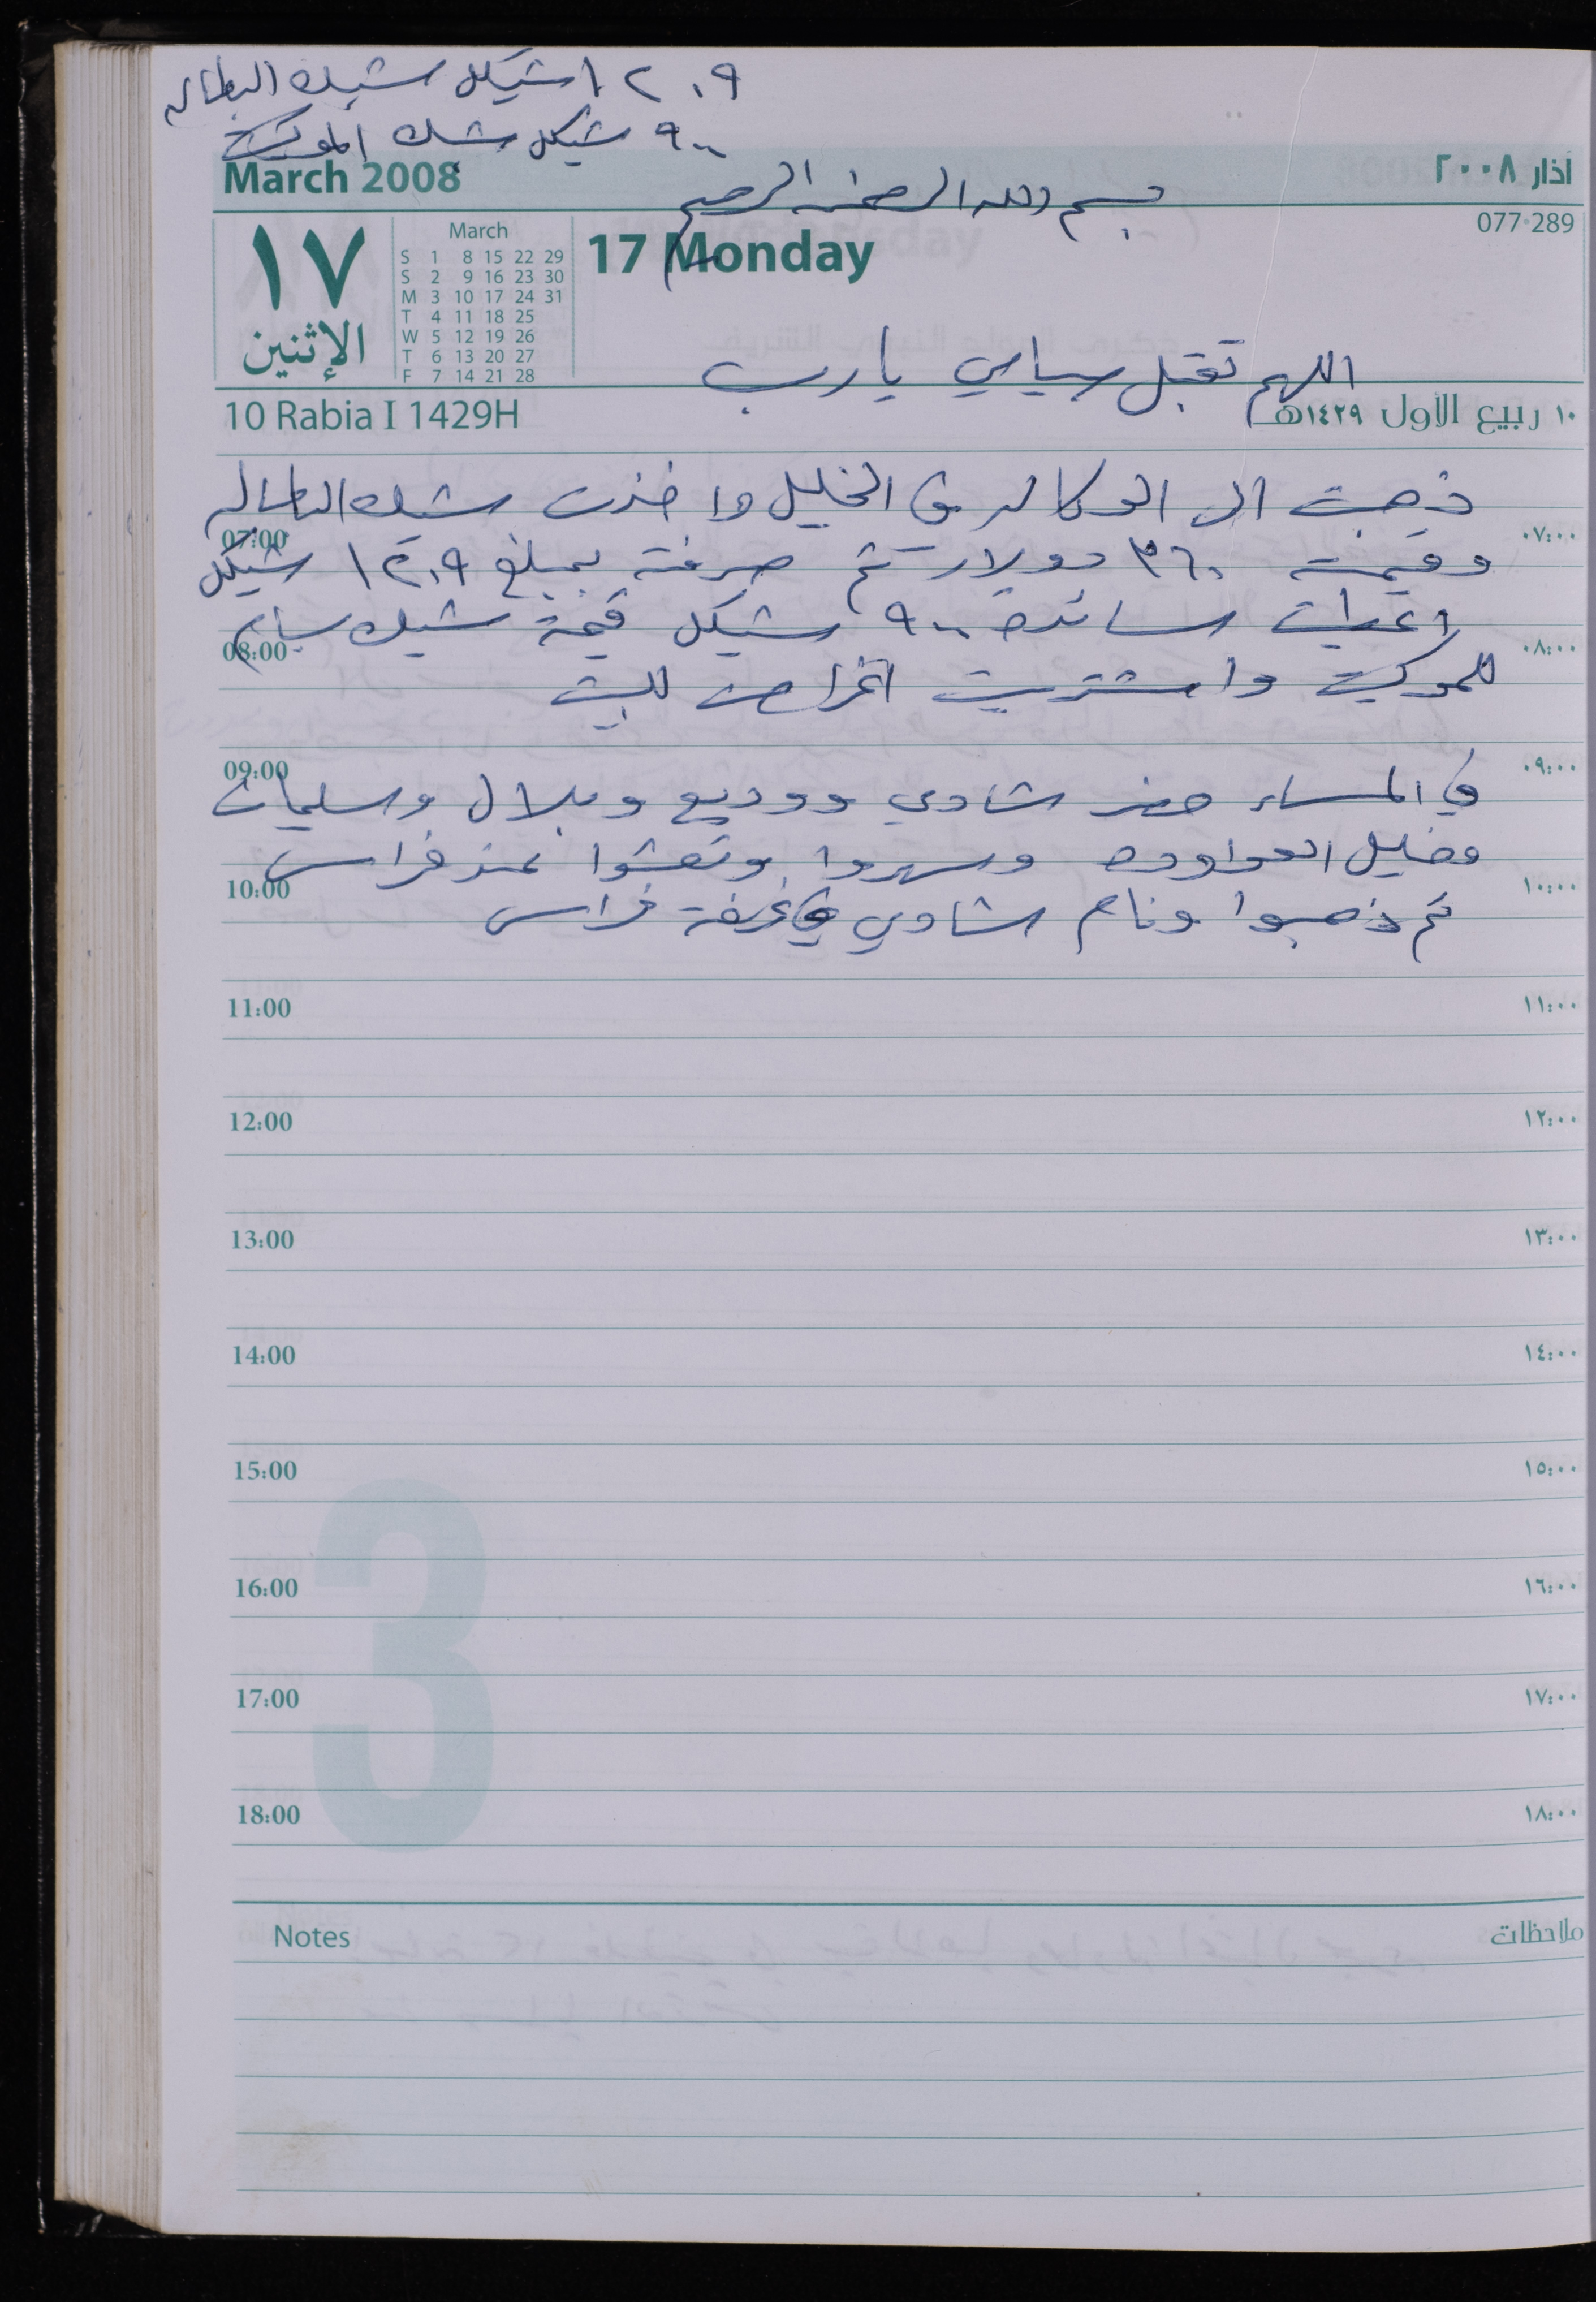 ١٢٠٩ شيكل شيك البطاله
٩٠٠ شيكل شيك الموكيت
March 2008
اذار ٢٠٠٨
بسم الله الرحمن الرحيم
077-289
١٧
الإثنين
March
S 1 8 15 22 29
S 2 9 16 23 30
M 3 10 17 24 31
T 4 11 18 25
W 5 12 19 26
T 6 13 20 27
F 7 14 21 28
17 Monday
اللهم تقبل صيامي يا رب
10 Rabia I 1429H
١٠ ربيع الاول ١٤٢٩هـ
ذهبت الى الوكاله في الخليل واخذت شيك البطاله
07:00 ٠٧:٠٠
وقيمته ٣٦٠ دولار تم صرفه بمبلغ ١٢٠٩ شيكل
اعطيت ٩٠٠ شيكل قيمة شيك
08:00 ٠٨:٠٠
للموكيت واشتريت اغراض للبيت
09:00 ٠٩:٠٠
في المساء حضر شادي ووديع وبلال وسليمان
وخليل العواوده وسهروا وتعشوا عند فراس
10:00 ١٠:٠٠
ثم ذهبوا ونام الشادي في غرفة فراس
11:00 ١١:٠٠
12:00 ١٢:٠٠
13:00 ١٣:٠٠
14:00 ١٤:٠٠
15:00 ١٥:٠٠
16:00 ١٦:٠٠
17:00 ١٧:٠٠
18:00 ١٨:٠٠
3
Notes ملاحظات